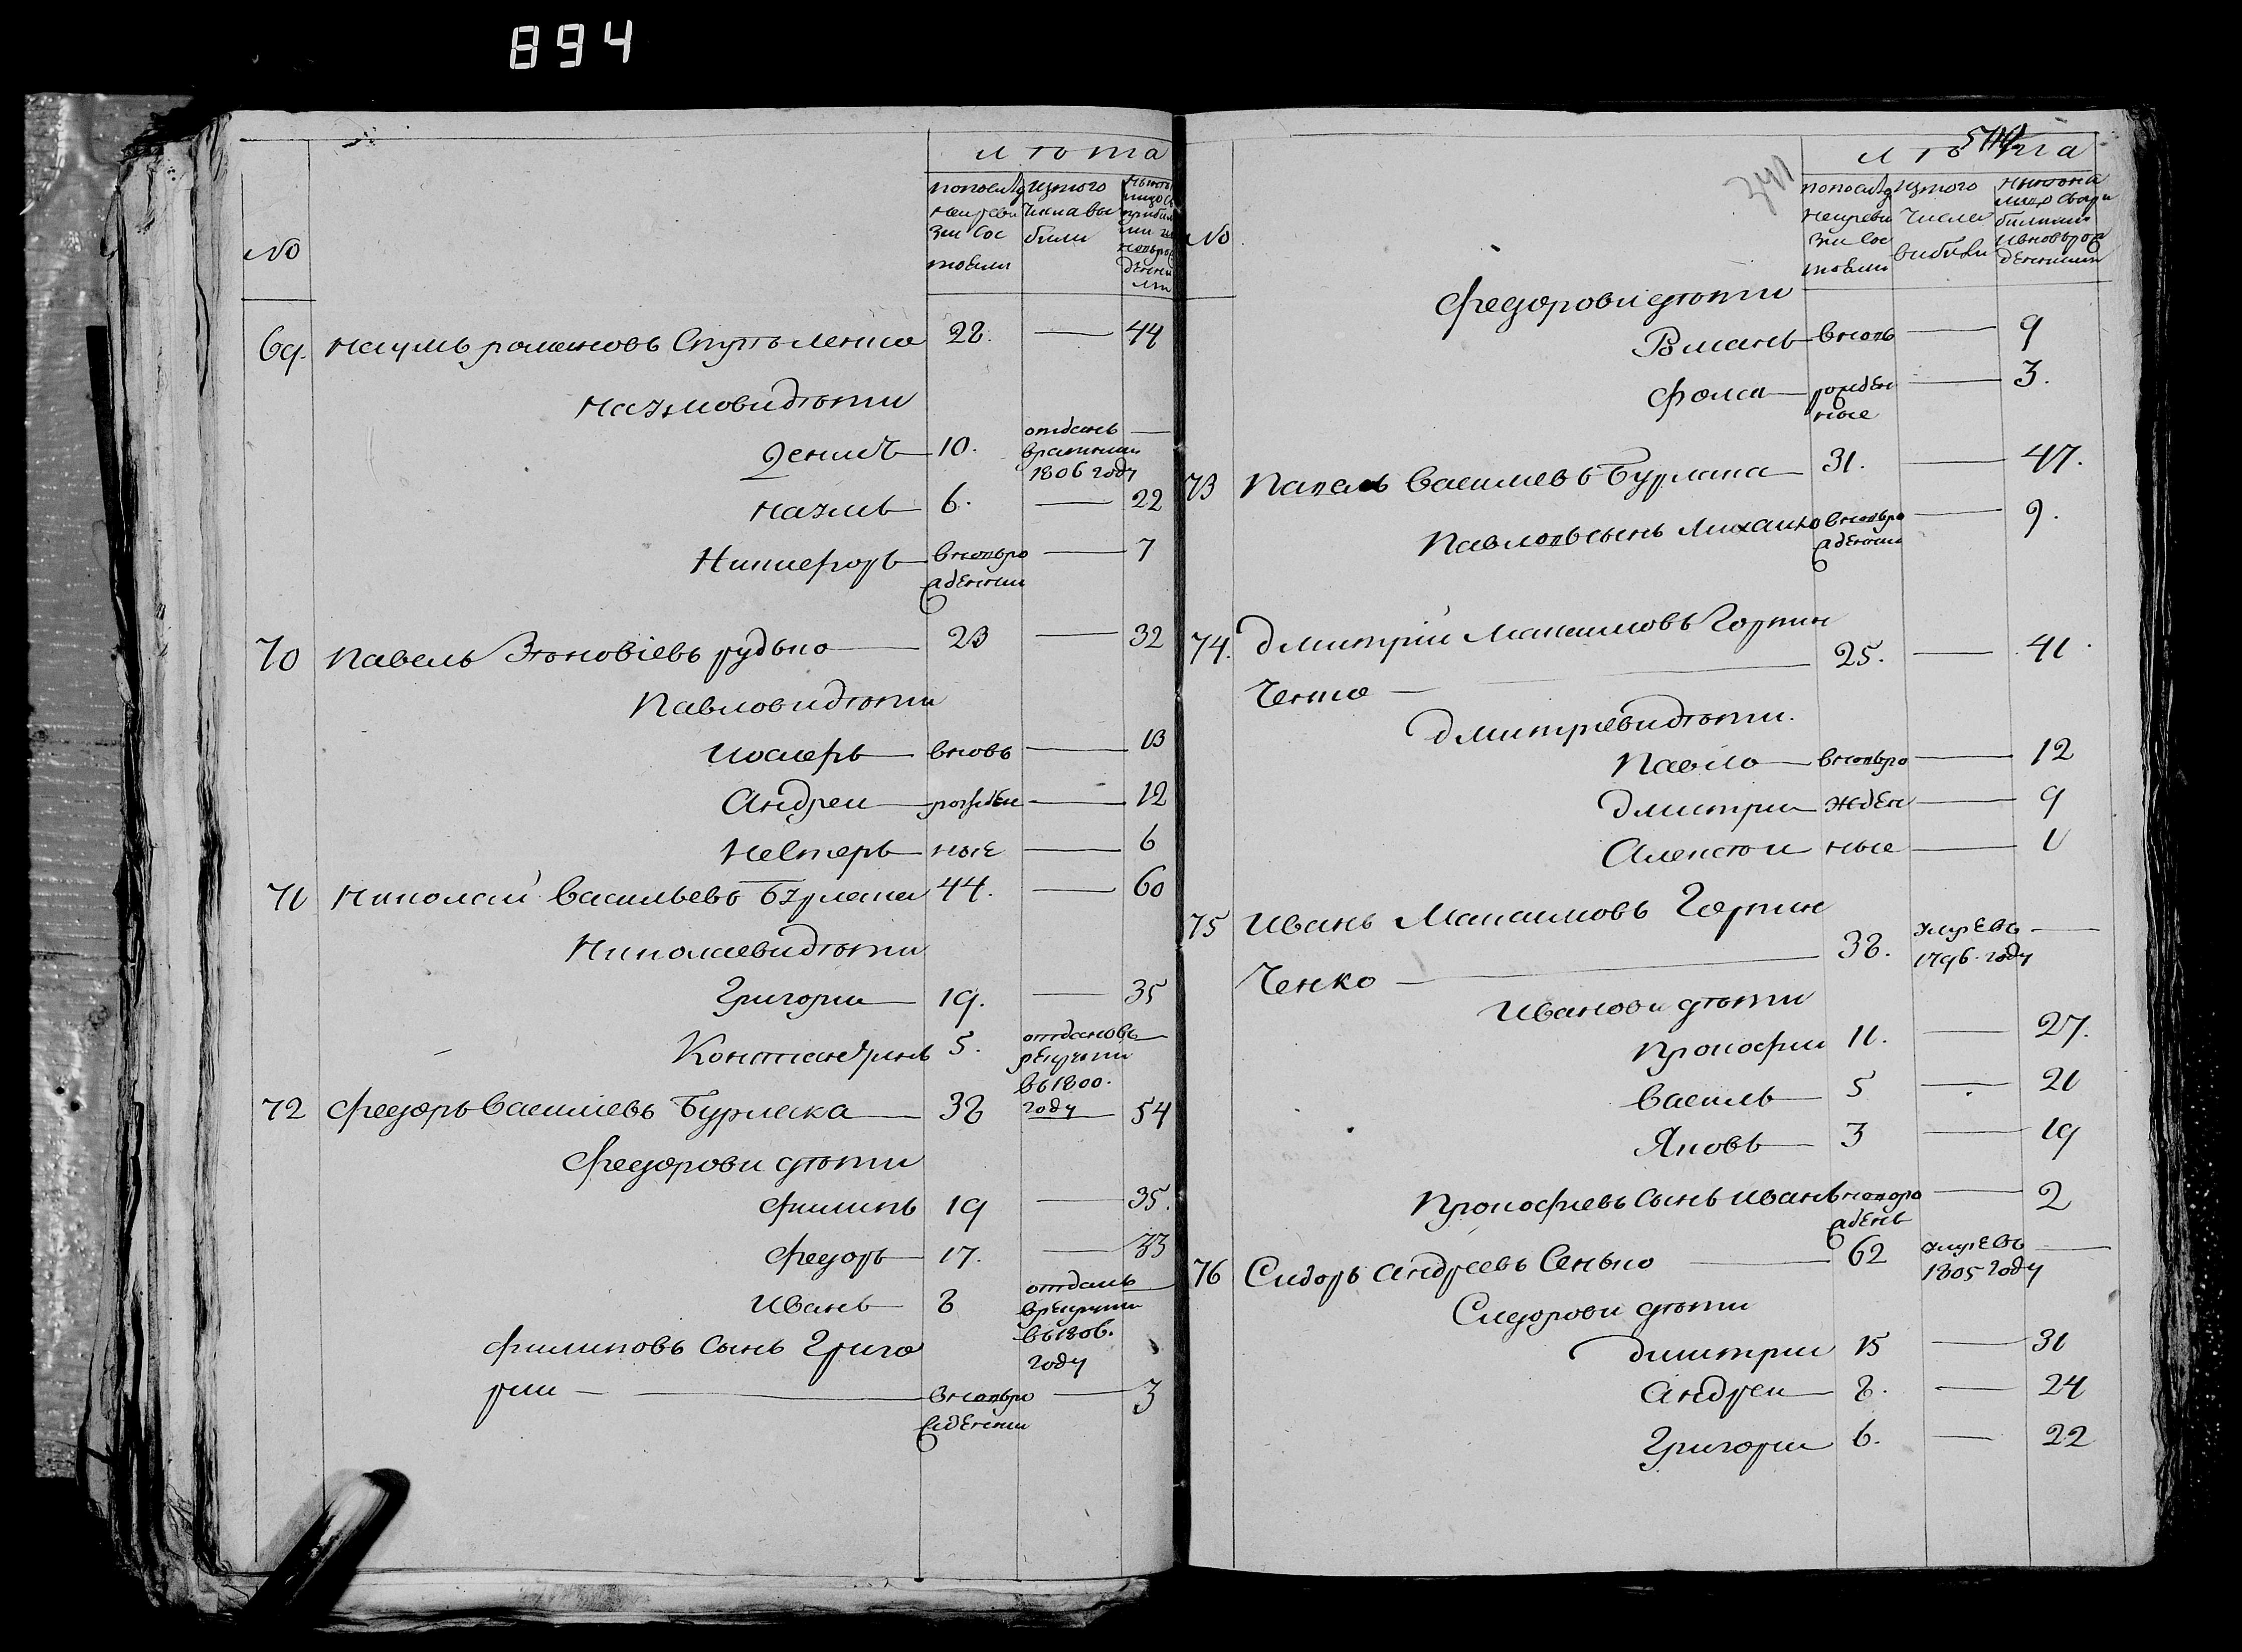 894
лѣта
№
по послѣд
ней реви
зіи сос
тояли
из того
числа вы
были
69. Наумъ романовъ 28. — 44
Наумови дѣти
Денисъ 10. отданъ —
1806 году
наумъ 6. — 22
Никифоръ вновьро — 7
жденни
70 Павелъ рудько 23 — 32
Павлови дѣти
иосиефъ вновь — 13
Андреи рожден — 12
Нестеръ ные — 6
71 Николай васильевъ Бурлака 44. — 60
Николаеви дѣти
Григории 19. — 35
Константинъ 5. отдановъ —
рекрути
въ 1800.
году
72 федоръ васил[иевъ Бурлака 38 — 54
федорови дѣти
филипъ 19 — 35.
федоръ 17. — 33
Иванъ 8 отданъ —
врекрути
въ 1806.
году
филиповъ сынъ Григо
рии — вновьро — 3
жденни
лѣта
№
по послѣд
ней реви
зіи сос
тояли
из того
числа
вибили
федорови дѣти
Романъ вновь — 9
фома рожден — 3.
ные
73 Павелъ васил[иевъ Бурлака 31. — 47.
Павловъ сынъ Михаило вновьро — 9.
жденни
74. дмитрій Максимовъ Горпин
ченко — 25. — 41.
дмитриеви дѣти.
Павло вновьро — 12
дмитрии жден — 9
Алексѣи ные — 1
75 Иванъ Максимовъ Горпин
ченко — 38. умревъ —
1796. году
Иванови дѣти
Прокофии 11. — 27.
василь 5 — 21
Яковъ 3 — 19
Прокофиевъ сынъ иванъ вновьро — 2
жденъ
76 Сидоръ андреевъ Сенько — 62 умревъ —
1805 году
Сидорови дѣти
димитрии 15 — 31
андреи 8. — 24
Григории 6. — 22